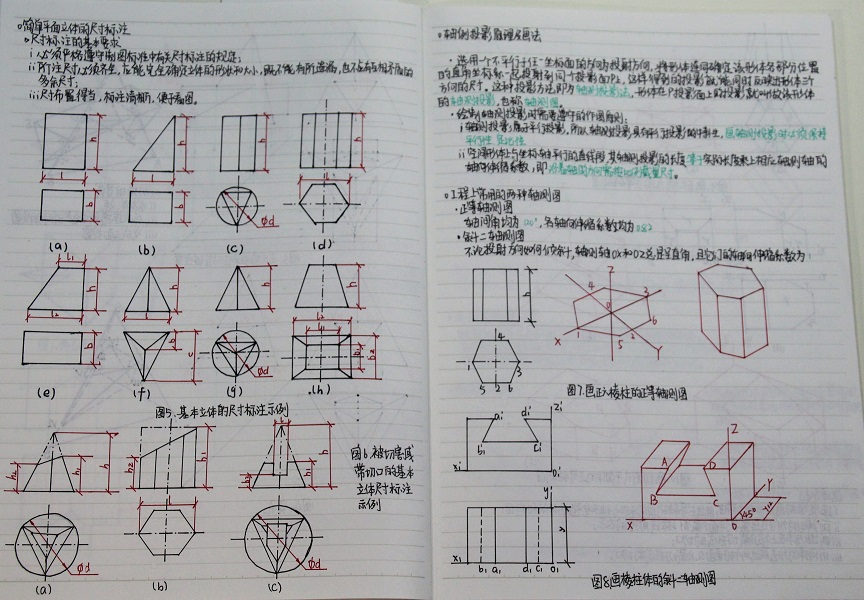 简单平面立体的尺寸标注
尺寸标注的基本要求
i 必须严格遵守制图标准中有关尺寸标注的规定;
ii 所注尺寸必须齐全,应能完全确定立体的形状和大小,既不能有所遗漏,也不应有互相矛盾的
多余尺寸;
iii 尺寸布置得当,标注清晰,便于看图。
h h h h
l l l
b b Φd
(a) (b) (c) (d)
l1 h h h h
l2 l l2
b b c Φd l1 b1 b2
(e) (f) (g) (h)
图5.基本立体的尺寸标注示例
h h1 h2 h2 h1 l b h h1 h2
图6.被切割或
带切口的基本
立体尺寸标注
示例
Φd Φd
(a) (b) (c)
轴测投影原理及画法
选用一个不平行于任一坐标面的方向为投射方向,将形体连同确定该形体各部分位置
的直角坐标系一起投射到同一个投影面P上,这样得到的投影就能同时反映出形体三个
方向的尺寸。这种投影方法即为轴测投影法,形体在P投影面上的投影就叫做该形体
的轴测投影,也称轴测图。
绘制轴测投影时需要遵守的作图原则:
i 轴测投影属于平行投影,所以轴测投影具有平行投影的特性,且轴测投影时必须保持
平行性、定比性
ii 空间形体上与坐标轴平行的直线段,其轴测投影的长度等于实际长度乘上相应轴测轴的
轴向伸缩系数,即沿着轴的方向需按比例度量尺寸。
工程上常用的两种轴测图
正等轴测图
轴间角均为120°,各轴向伸缩系数均为0.82
斜二轴测图
不论投射方向如何倾斜,轴测轴OX和OZ总是呈直角,且它们的轴向伸缩系数为1
h Z 4 3 0 6 1 2 5 X Y
4 1 3 5 2 6
图7.画正六棱柱的正等轴测图
a1' d1' Z1' b1' c1' X1' O1'
Z A D B C Y X O 45° Y/2
y1 y X1 b1 a1 d1 c1 O1
图8.画棱柱体的斜二轴测图